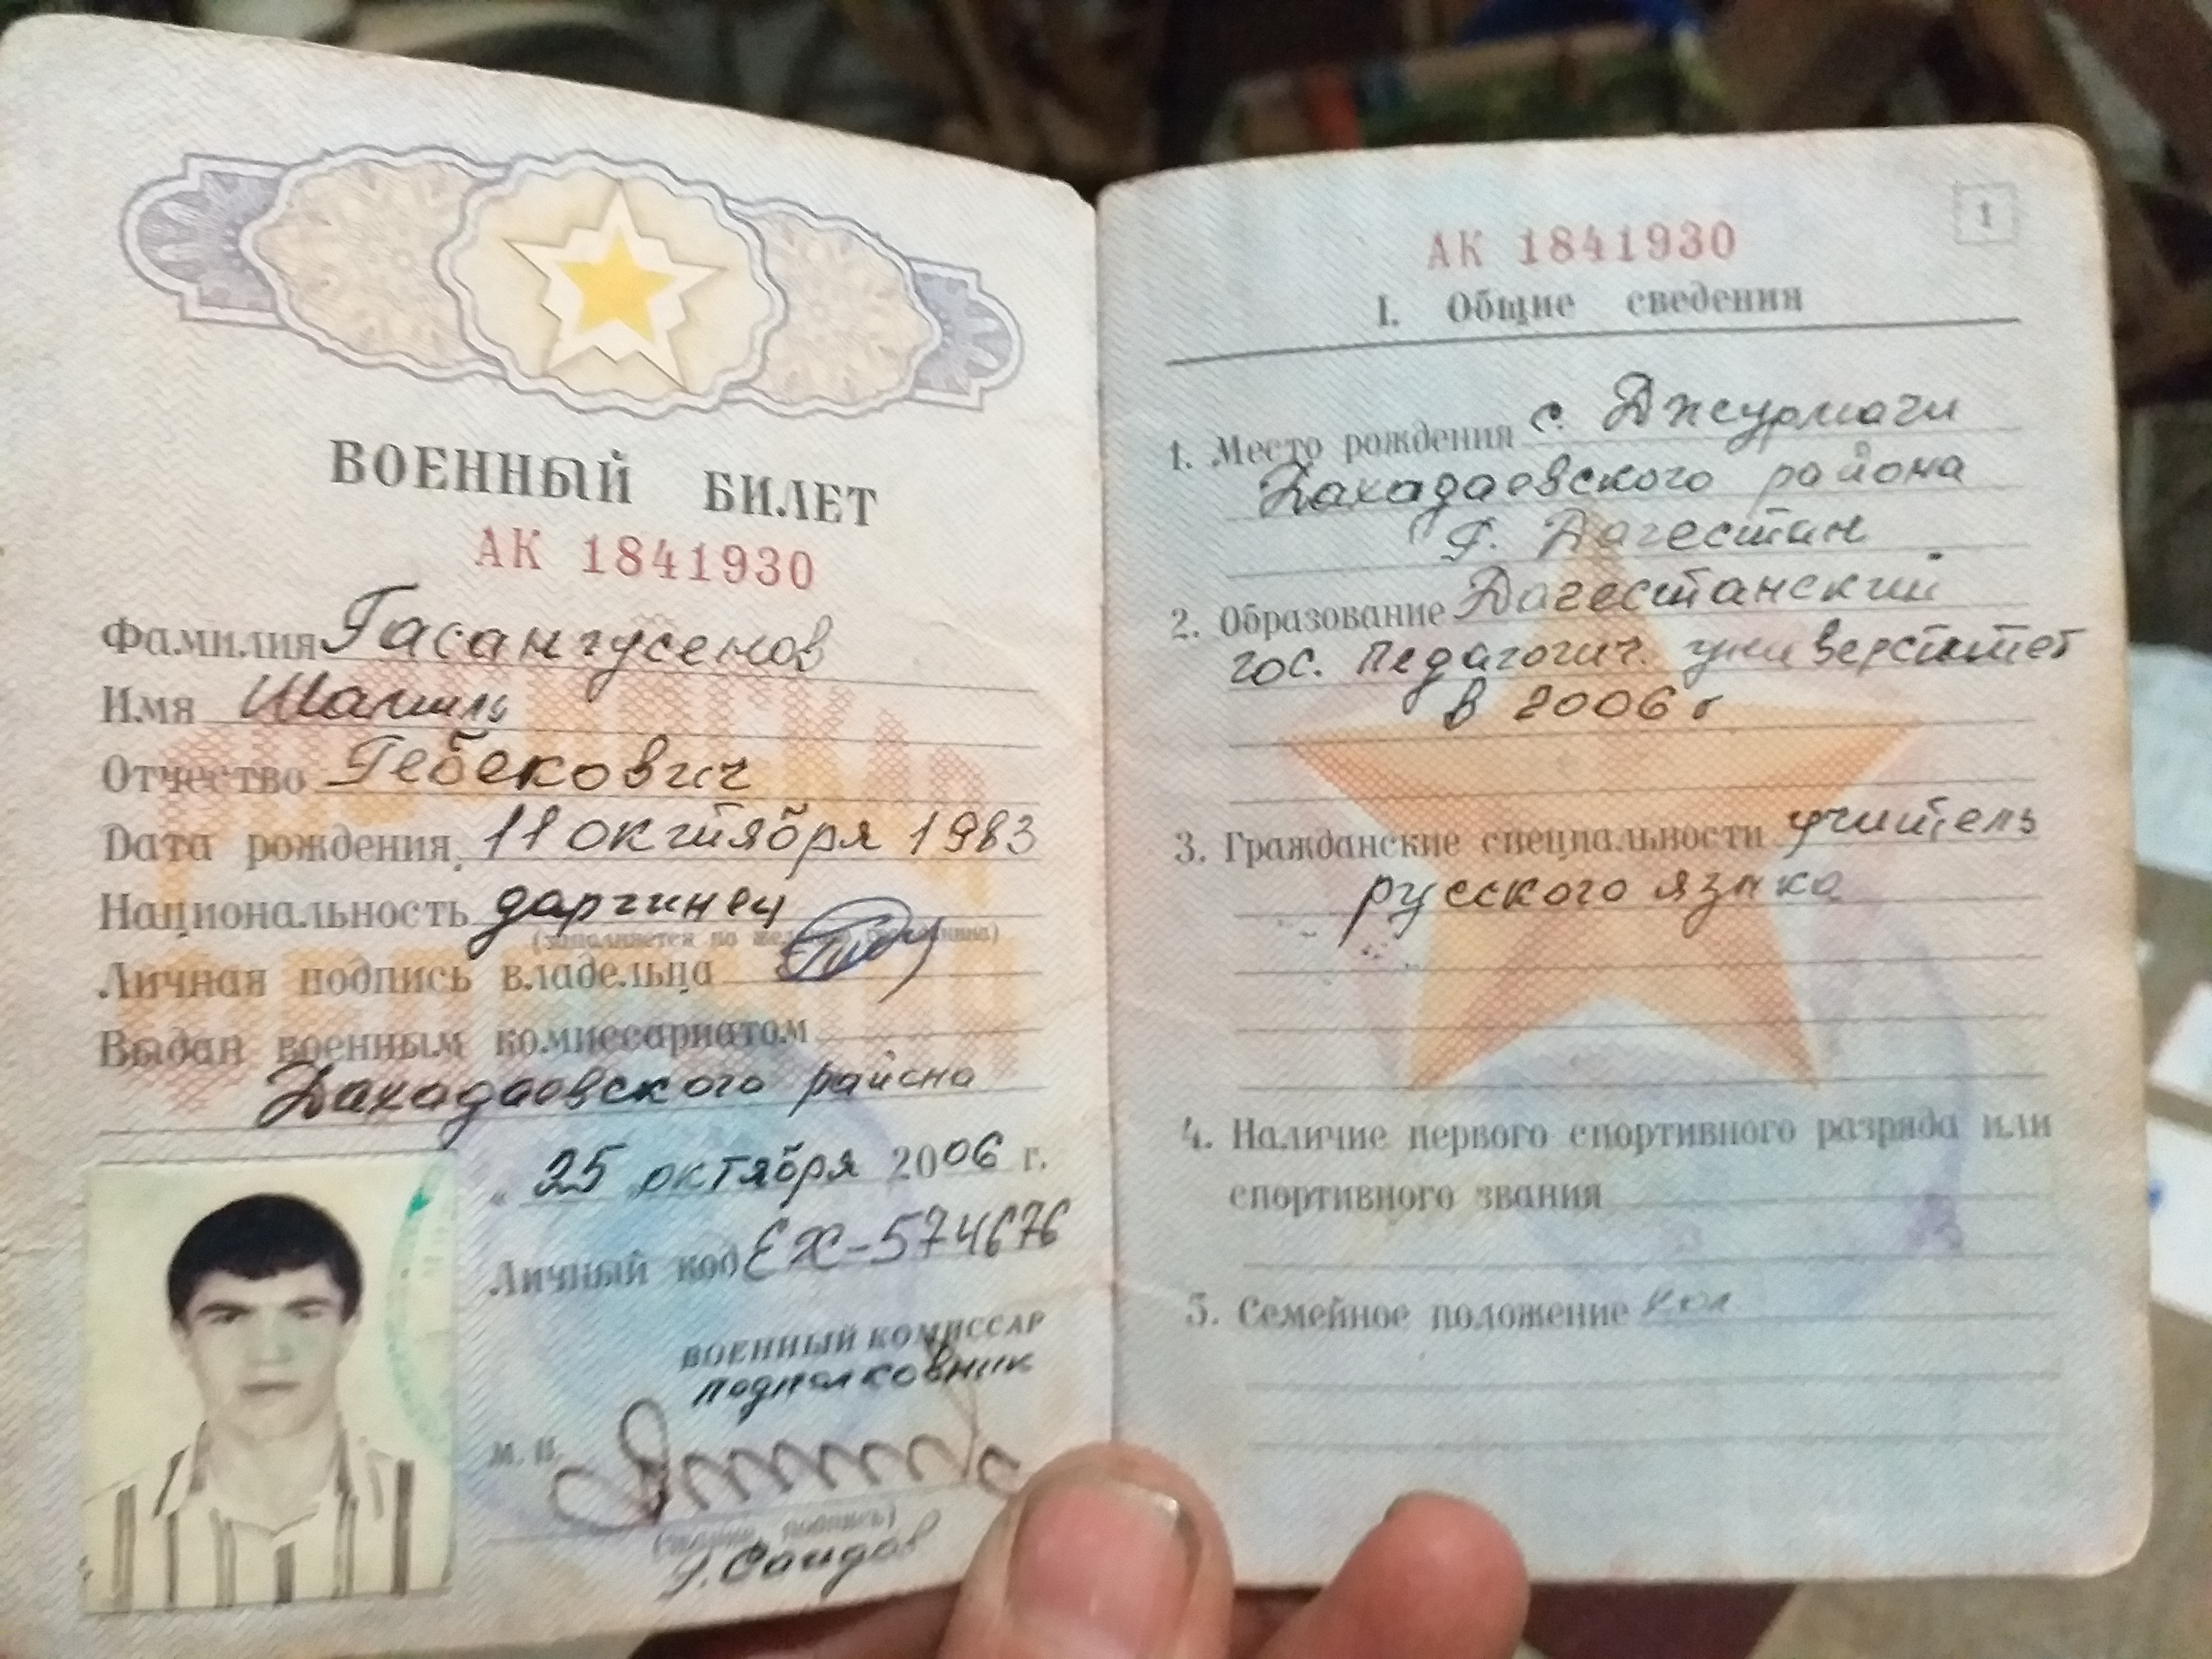 ВОЕННЫЙ БИЛЕТ
АК 1841930
Фамилия Гасангусенов
Имя Шамиль
Отчество Гебекович
Дата рождения 11 октября 1983
Национальность даргинец
(заполняется по желанию гражданина)
Личная подпись владельца
Выдан военным комиссариатом
Дахадаевского района
" 25 октября 2006 г.
Личный код ЕХ-574676
ВОЕННЫЙ КОМИССАР
подполковник
М. П.
подпись)
Саидов
1
АК 1841930
I. Общие сведения
1. Место рождения с. Джурмачи
Дахадаевского района
Р. Дагестан
2. Образование Дагестанский
гос. педагогич. университет
в 2006 г
3. Гражданские специальности учитель
русского языка
4. Наличие первого спортивного разряда или
спортивного звания
5. Семейное положение хол